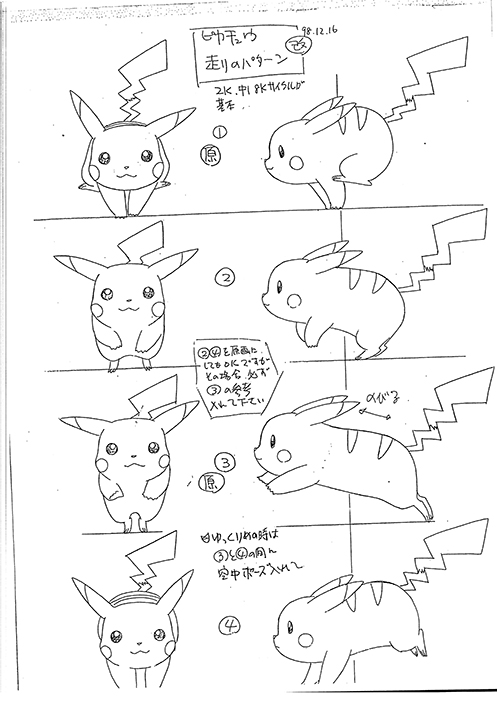 98.12.16
ピカチュウ
改
走りのパターン
2K.中1 8Kサイクルが
基本.
①
原
②
②④を原画に
してもOKですが
その場合 必ず
③の参考
入れて下さい
のびる
③
原
ゆっくりめの時は
③と④の間に
空中ポーズ入れて
④